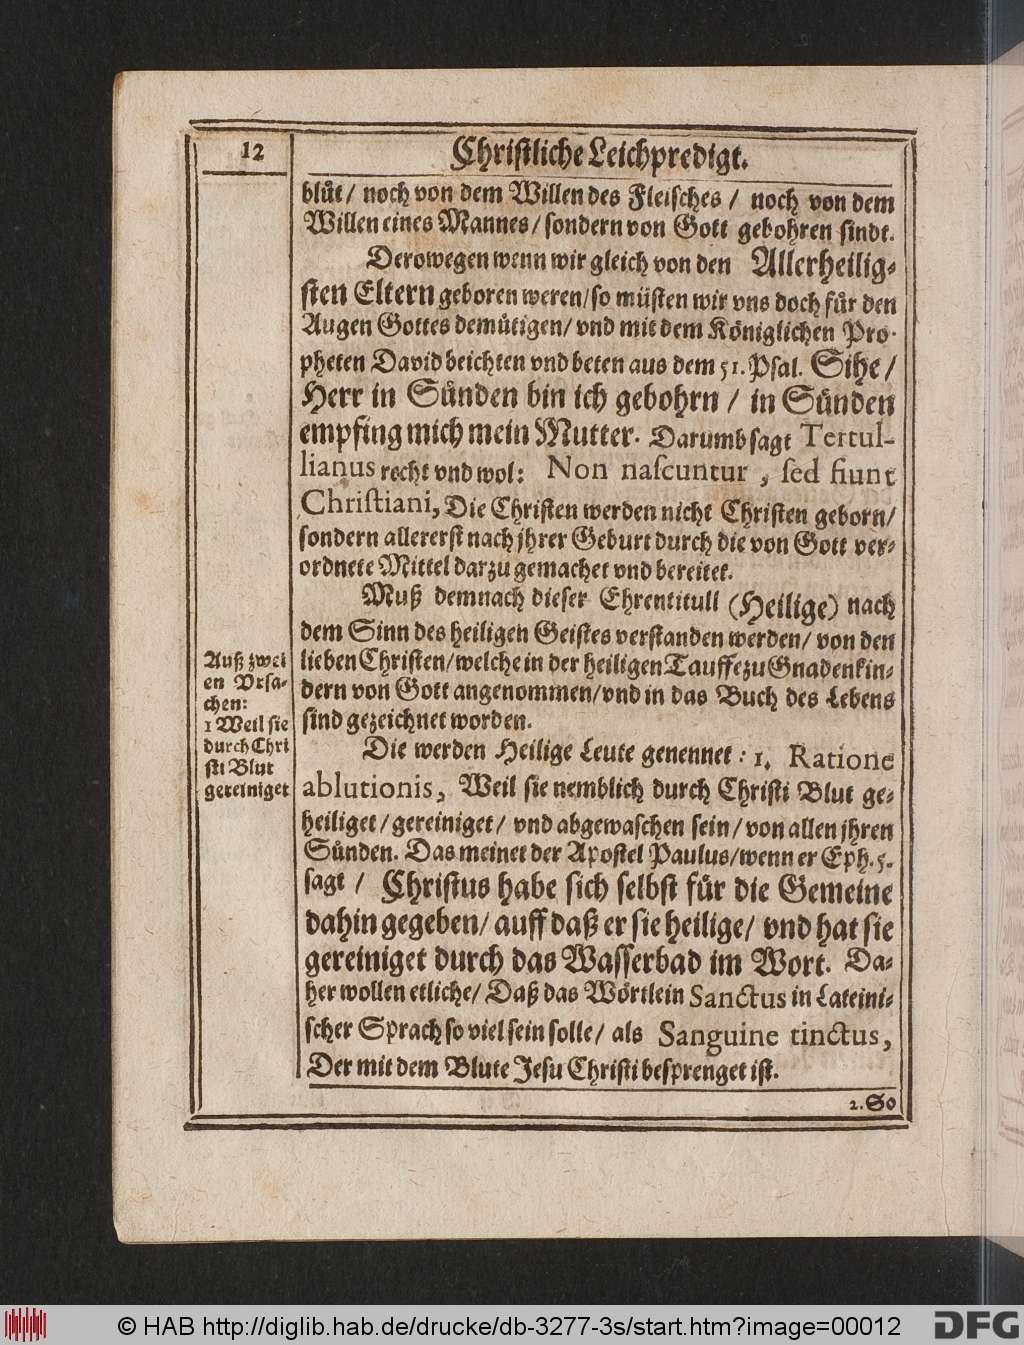 12
Christliche Leichpredigt.
blůt / noch von dem Willen des Fleisches / noch von dem
Willen eines Mannes / sondern von Gott gebohren sindt.
Derowegen wenn wir gleich von den Allerheilig-
sten Eltern geboren weren / so můsten wir vns doch fůr den
Augen Gottes demůtigen / vnd mit dem Königlichen Pro-
pheten David beichten vnd beten aus dem 51. Psal. Sihe /
Herr in Sůnden bin ich gebohrn / in Sůnden
empfing mich mein Mutter. Darumb sagt Tertul-
lianus recht vnd wol: Non nascuntur, sed fiunt
Christiani, Die Christen werden nicht Christen geborn /
sondern allererst nach jhrer Geburt durch die von Gott ver-
ordnete Mittel darzu gemachet vnd bereitet.
Muß demnach dieser Ehrentitull (Heilige) nach
dem Sinn des heiligen Geistes verstanden werden / von den
lieben Christen / welche in der heiligen Tauffe zu Gnadenkin-
dern von Gott angenommen / vnd in das Buch des Lebens
sind gezeichnet worden.
Auß zwei
en Vrsa-
chen:
1 Weil sie
durch Chri
sti Blut
gereiniget
Die werden Heilige Leute genennet: 1. Ratione
ablutionis, Weil sie nemblich durch Christi Blut ge-
heiliget / gereiniget / vnd abgewaschen sein / von allen jhren
Sůnden. Das meinet der Apostel Paulus / wenn er Eph. 5.
sagt / Christus habe sich selbst fůr die Gemeine
dahin gegeben / auff daß er sie heilige / vnd hat sie
gereiniget durch das Wasserbad im Wort. Da-
her wollen etliche / Daß das Wörtlein Sanctus in Lateini-
scher Sprach so viel sein solle / als Sanguine tinctus,
Der mit dem Blute Jesu Christi besprenget ist.
2. So
© HAB http://diglib.hab.de/drucke/db-3277-3s/start.htm?image=00012
DFG